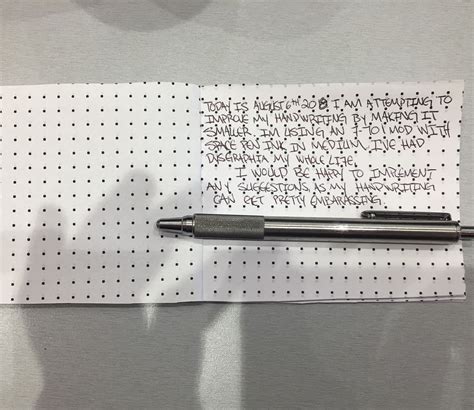 TODAY IS AUGUST 6TH 2018 I AM ATTEMPTING TO
IMPROVE MY HANDWRITING BY MAKING IT
SMALLER. IM USING AN F-701 MOD WITH
SPACE PEN INK IN MEDIUM. I'VE HAD
DYSGRAPHIA MY WHOLE LIFE.
I WOULD BE HAPPY TO IMPLEMENT
ANY SUGGESTIONS AS MY HANDWRITING
CAN GET PRETTY EMBARASSING.